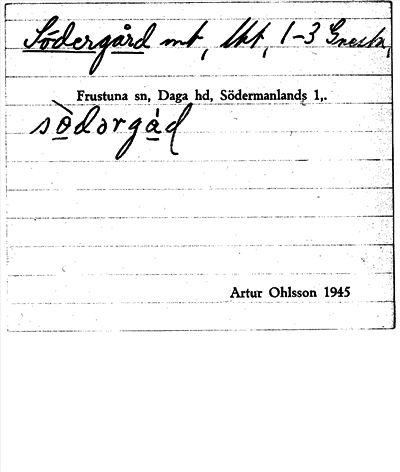 Södergård mt, lht, 1-3 Gnesta,
Frustuna sn, Daga hd, Södermanlands l,.
sòdərgád
Artur Ohlsson 1945